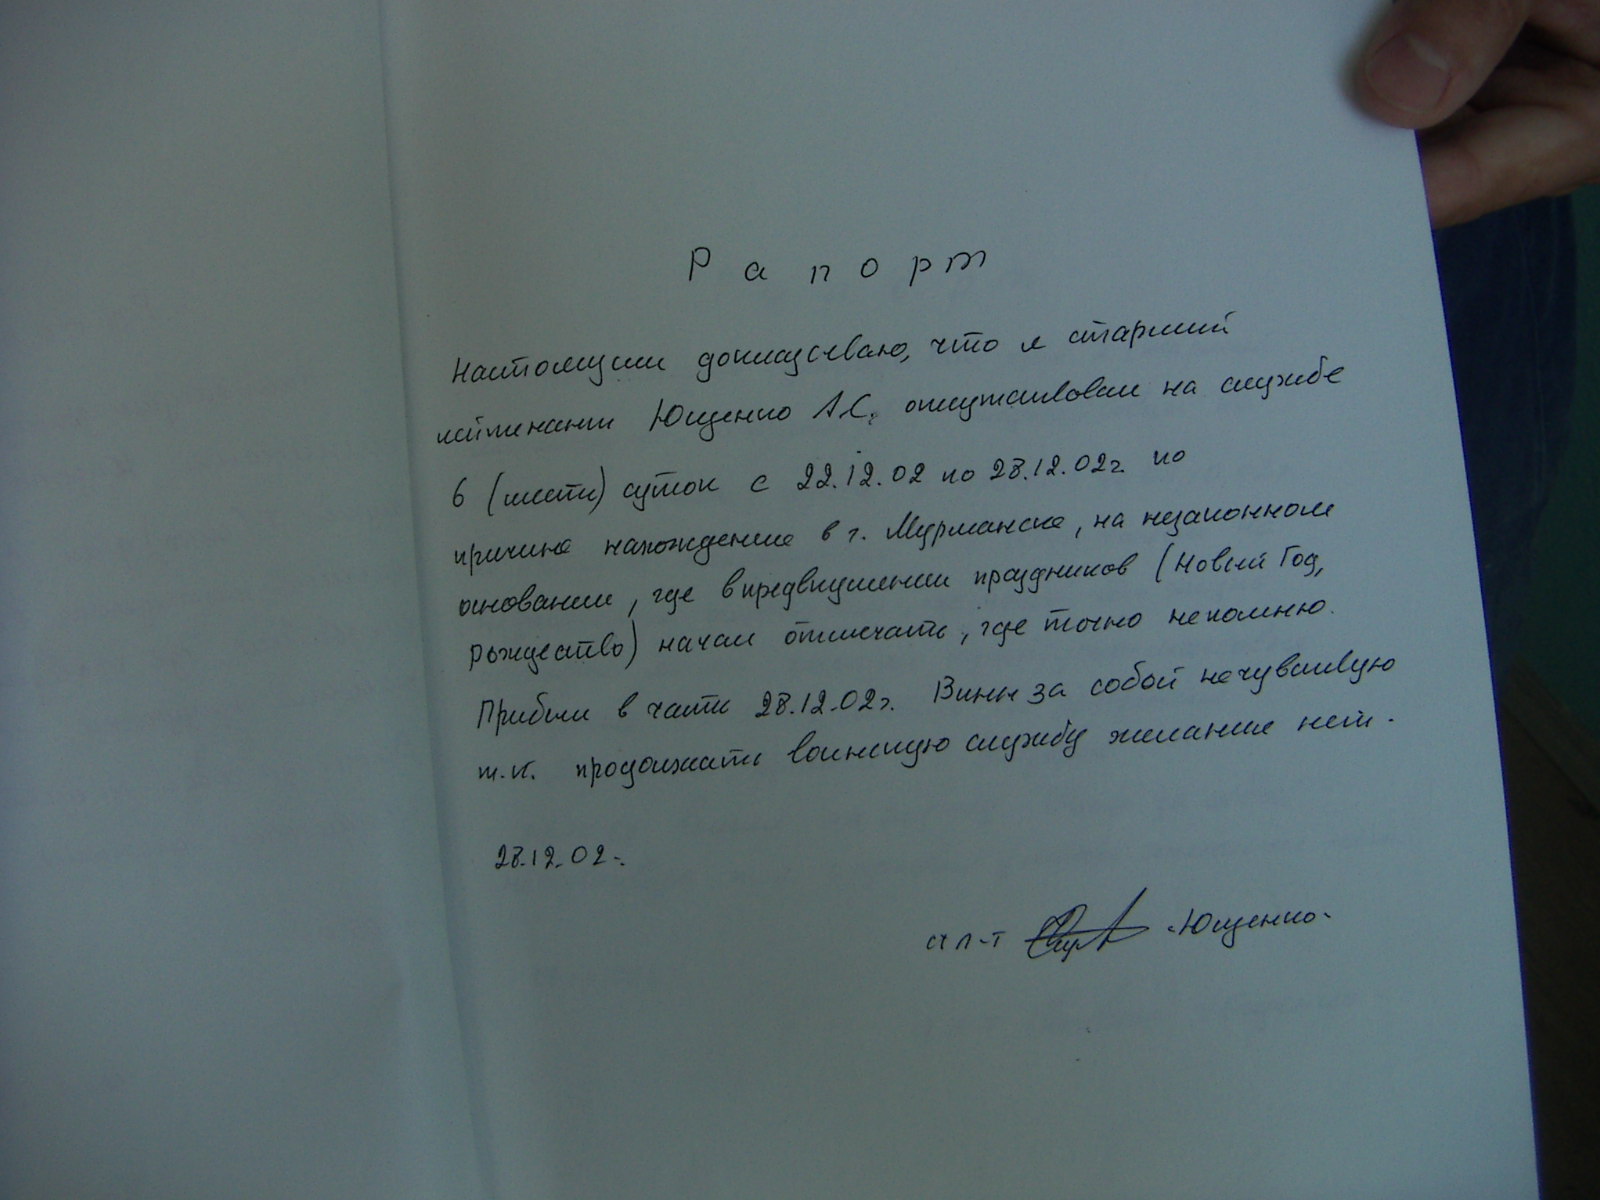 Рапорт
Настоящим докладываю, что я старший
лейтенант Ющенко А.С. отсутствовал на службе
6 (шесть) суток с 22.12.02 по 28.12.02г. по
причине нахождение в г. Мурманске, на незаконном
основании, где в предвкушении праздников (Новый Год,
рождество) начал отмечать, где точно не помню.
Прибыл в часть 28.12.02г. Вины за собой не чувствую
т.к. продолжать воинскую службу желание нет.
28.12.02.
ст л-т Ющенко